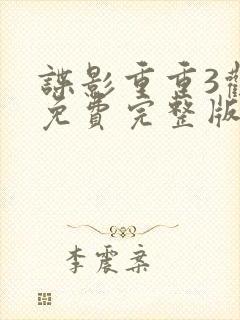 諜影重重3觀
免費完整版
李震案